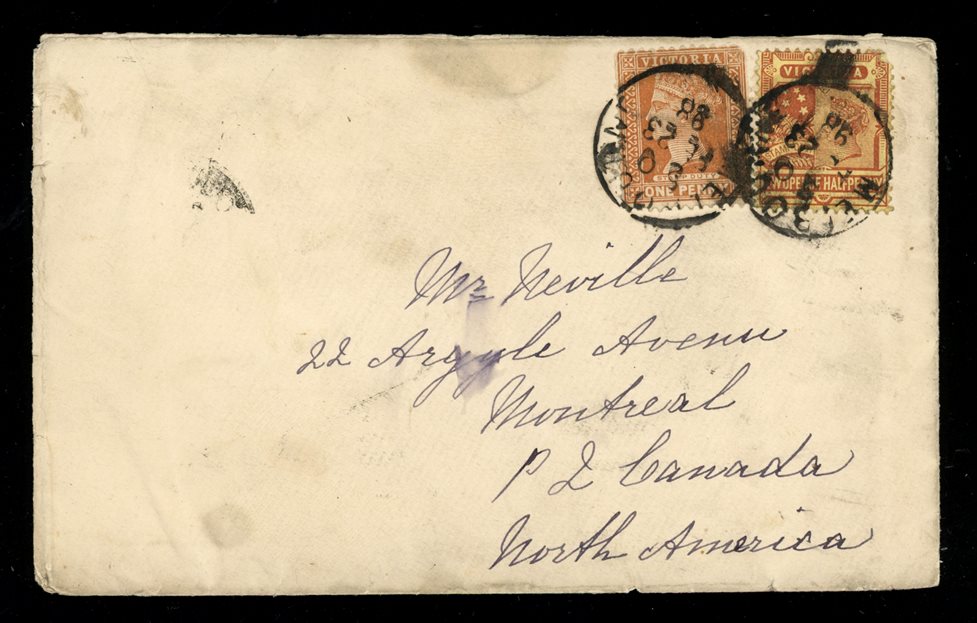 VICTORIA
STAMP DUTY
ONE PENNY
VICTORIA
TWOPENCE HALFPENNY
MELBOURNE
23
98
MELBOURNE
23
98
Mr Neville
22 Argyle Avenu
Montreal
P Q Canada
North America